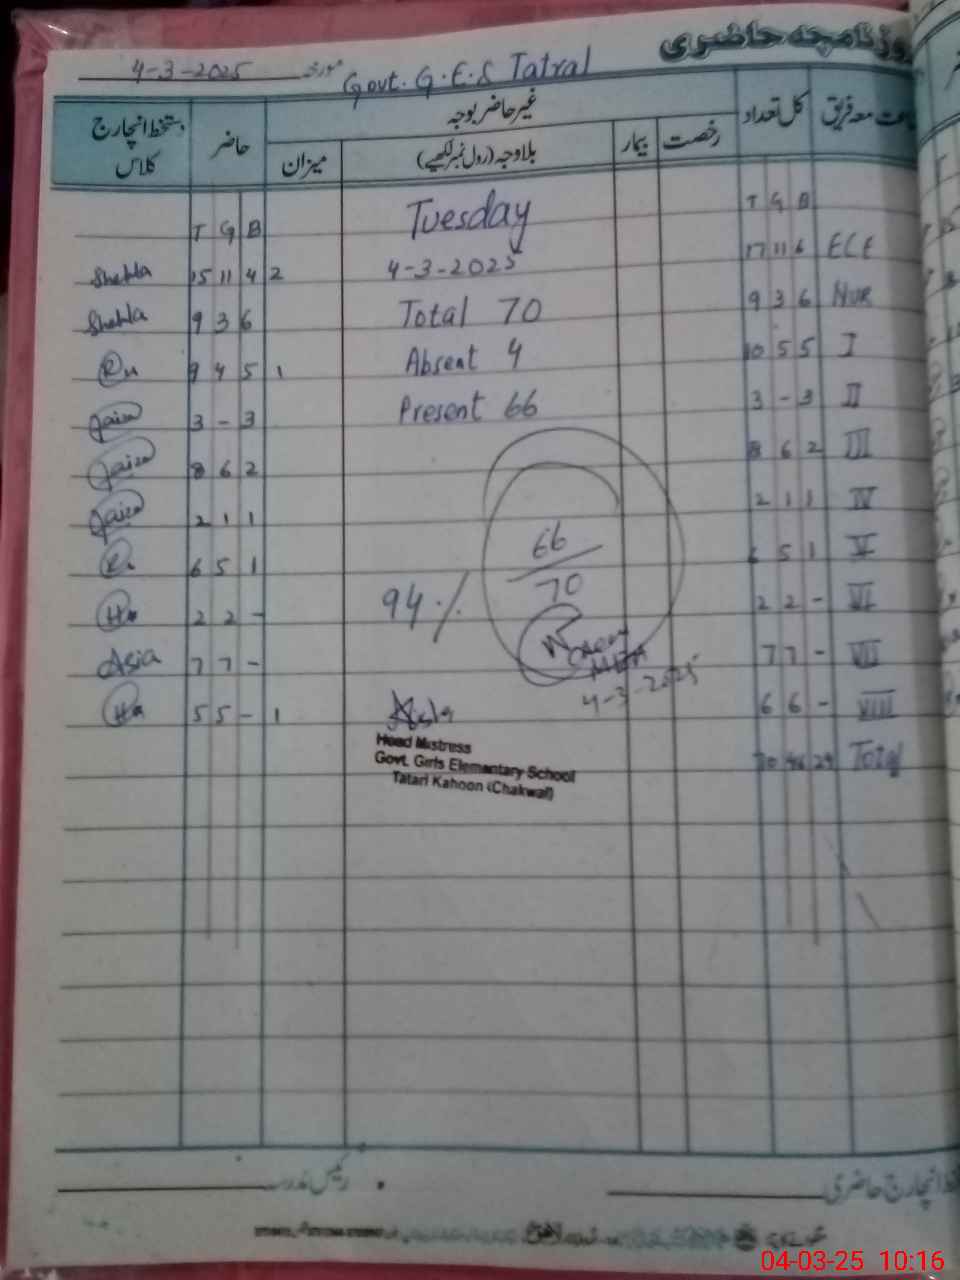 روزنامچہ حاضری
مورخہ 4-3-2025
Govt. G.E.S Tatral
جماعت معہ فریق کل تعداد غیر حاضر بوجہ حاضر دستخط انچارج کلاس
رخصت بیمار بلاوجہ (رول نمبر لکھیے) میزان
T G B Tuesday T G B
Shehla 15 11 4 2 4-3-2025 17 11 6 ECE
Shehla 9 3 6 Total 70 9 3 6 Nur
9 4 5 1 Absent 4 10 5 5 I
3 - 3 Present 66 3 - 3 II
8 6 2 8 6 2 III
2 1 1 2 1 1 IV
6 5 1 66 6 5 1 V
2 2 - 94% 70 2 2 - VI
Asia 7 7 - 7 7 - VII
4-3-2025
5 5 - 1 6 6 - VIII
Head Mistress
Govt. Girls Elementary School
Tatarl Kahoon (Chakwal)
70 46 24 Total
انچارج حاضری
رئیس مدرسہ
04-03-25 10:16